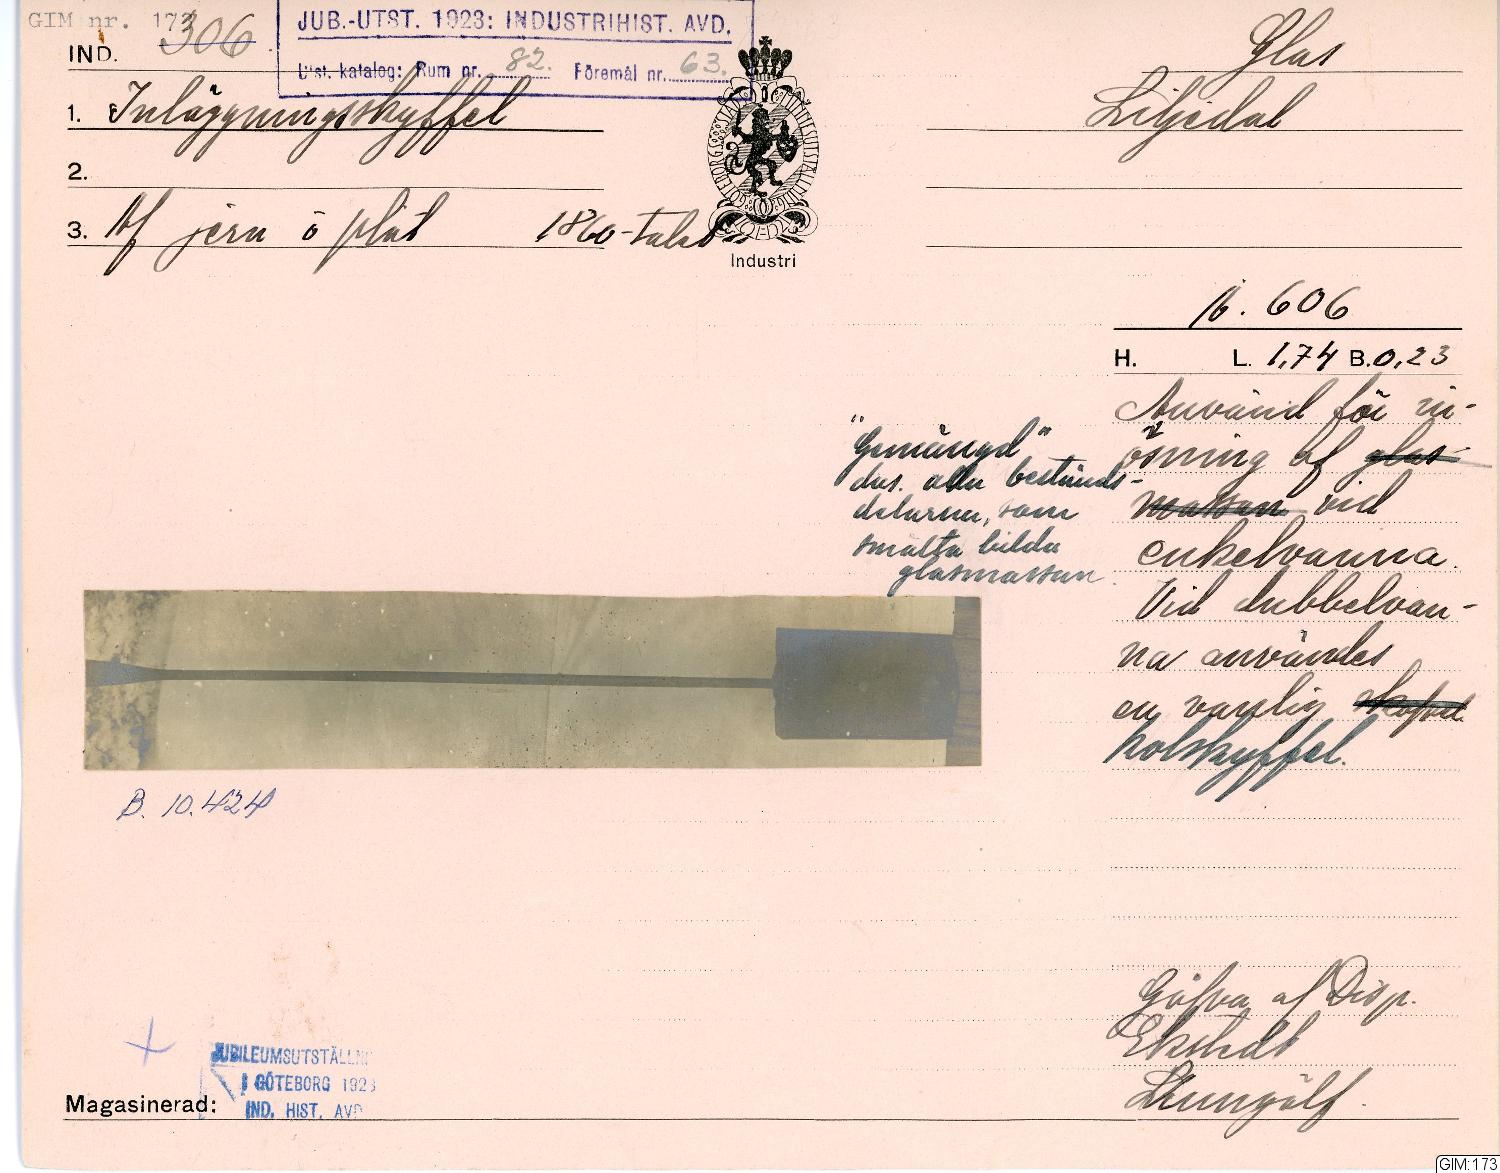 GIM nr. 173
IND. 306
JUB.-UTST. 1923: INDUSTRIHIST. AVD.
Utst. katalog: Rum nr. 82. Föremål nr. 63.
Glas
1. Inläggningsskyffel
Liljedal
2.
3. Af järn o plåt 1860-talet
GÖTEBORGS STADS MINNESUTSTÄLLNING
Industri
N. 606
H. L. 1,74 B. 0,23
Använd för in-
ösning af glas-
massan vid
enkelvanna.
Vid dubbelvan-
na användes
en vanlig
kolskyffel.
"Gemängd"
dvs. alla bestånds-
delarna, som
smälta bilda
glasmassan
B. 10.424
Gåfva af Disp.
Ekstedt
Magasinerad:
JUBILEUMSUTSTÄLLN
I GÖTEBORG 1923
IND. HIST. AVD
GIM:173